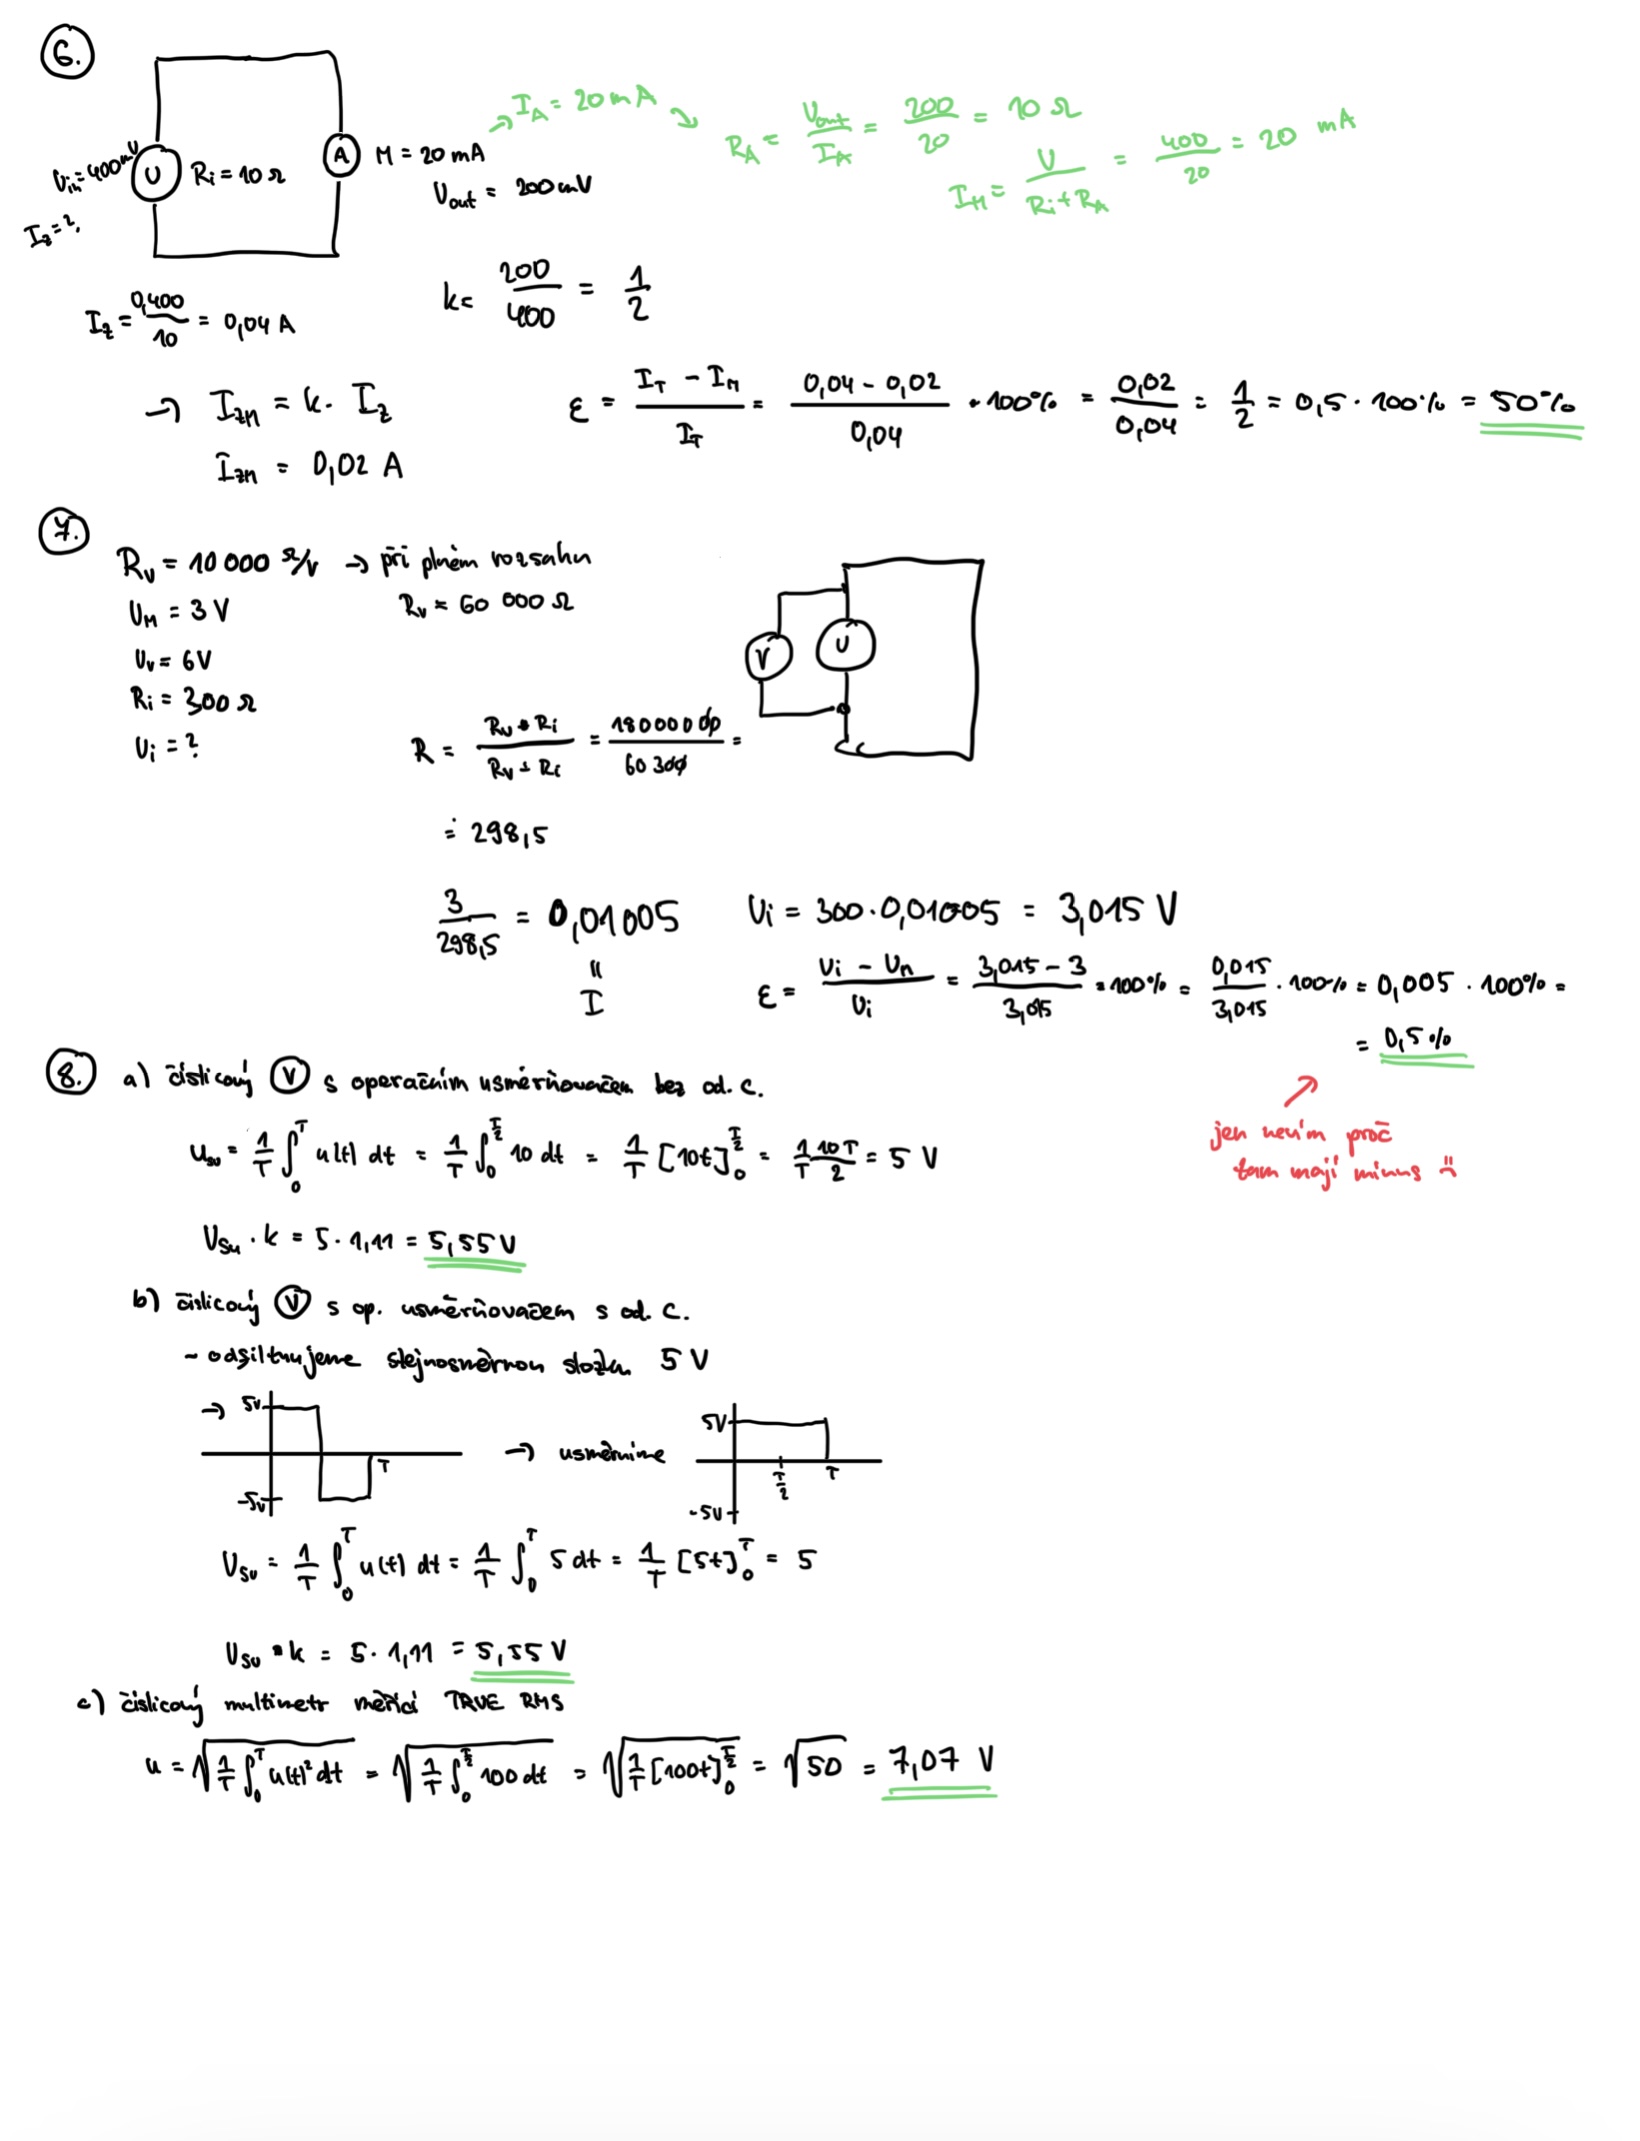 6.
U_in = 400 mV
U R_i = 10 Ω
I_z = ?
A M = 20 mA
U_out = 200 mV
→ I_A = 20 mA ↘
R_A = U_out / I_A = 200 / 20 = 10 Ω
I_M = U / (R_i + R_A) = 400 / 20 = 20 mA
I_z = 0,400 / 10 = 0,04 A
k = 200 / 400 = 1/2
→ I_zM = k · I_z
I_zM = 0,02 A
ε = (I_T - I_M) / I_T = (0,04 - 0,02) / 0,04 · 100% = 0,02 / 0,04 = 1/2 = 0,5 · 100% = 50%
7.
R_V = 10 000 Ω/V → při plném rozsahu
R_V = 60 000 Ω
U_M = 3 V
U_V = 6 V
R_i = 300 Ω
U_i = ?
V U
R = (R_V · R_i) / (R_V + R_i) = 18000000 / 60300 =
≐ 298,5
3 / 298,5 = 0,01005
= I
U_i = 300 · 0,01005 = 3,015 V
ε = (U_i - U_M) / U_i = (3,015 - 3) / 3,015 · 100% = 0,015 / 3,015 · 100% = 0,005 · 100% =
= 0,5%
jen nevím proč
tam mají minus :(
8. a) číslicový V s operačním usměrňovačem bez od. C.
U_su = 1/T ∫_0^T u(t) dt = 1/T ∫_0^{T/2} 10 dt = 1/T [10t]_0^{T/2} = 1/T 10T/2 = 5 V
U_su · k = 5 · 1,11 = 5,55 V
b) číslicový V s op. usměrňovačem s od. C.
- odfiltrujeme stejnosměrnou složku 5 V
→ 5V
T
-5V
→ usměrníme
5V
T/2 T
-5V
U_su = 1/T ∫_0^T u(t) dt = 1/T ∫_0^T 5 dt = 1/T [5t]_0^T = 5
U_su · k = 5 · 1,11 = 5,55 V
c) číslicový multimetr měřící TRUE RMS
u = √(1/T ∫_0^T u(t)² dt) = √(1/T ∫_0^{T/2} 100 dt) = √(1/T [100t]_0^{T/2}) = √50 = 7,07 V